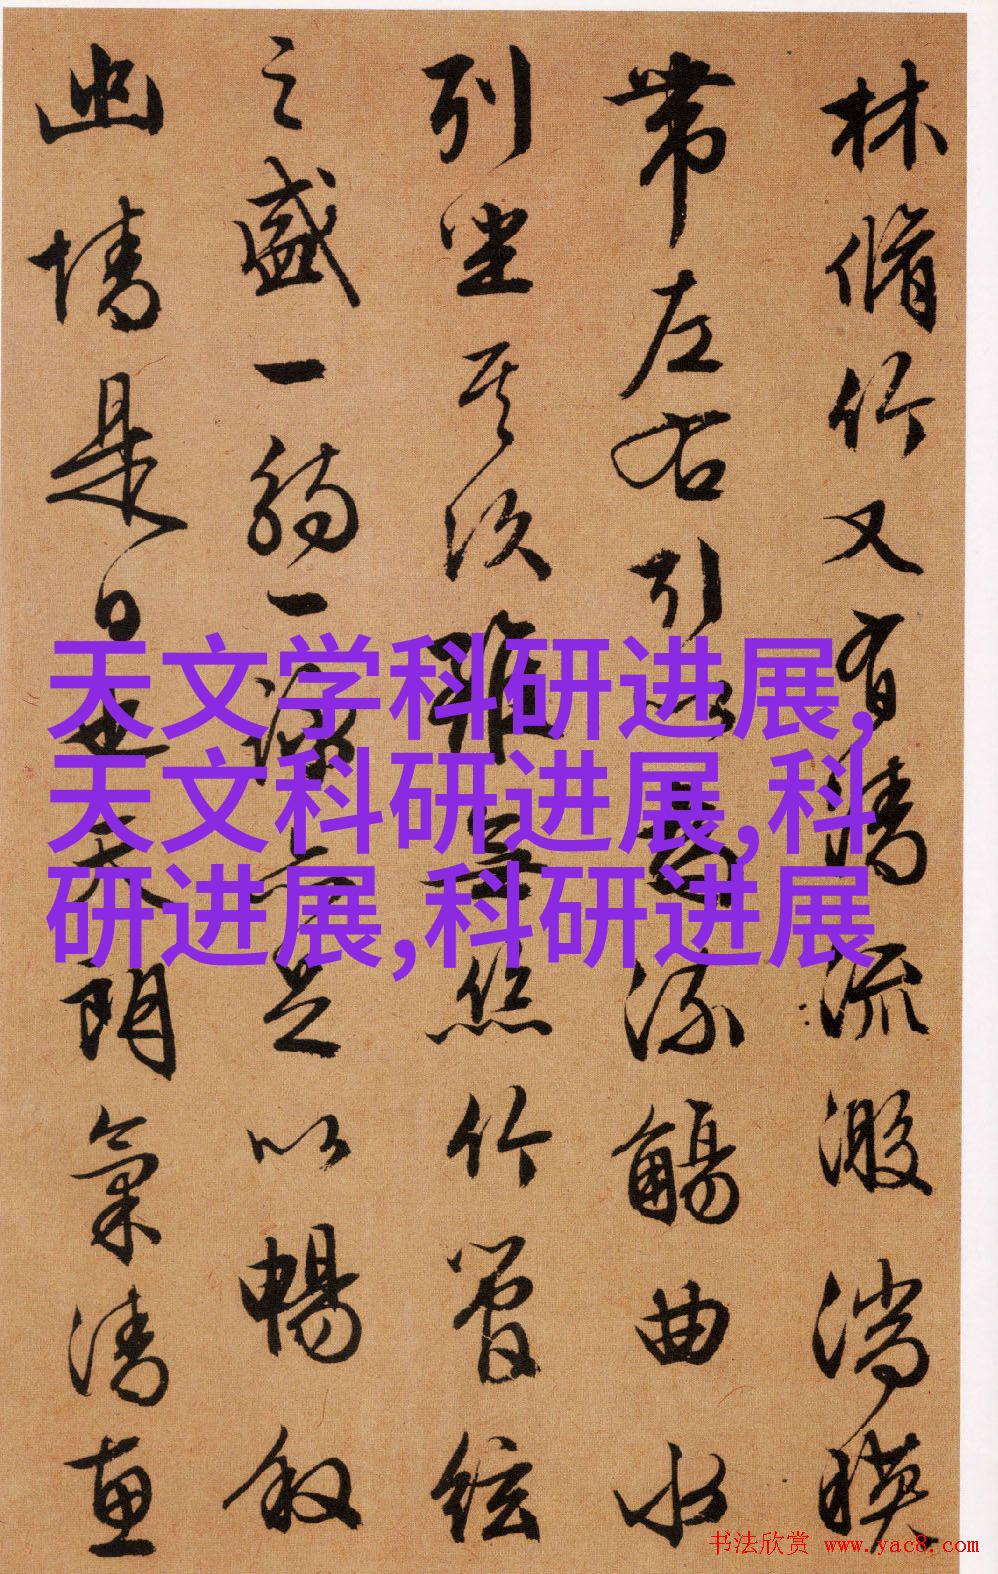 林脩竹又有清流激湍映
帶左右引以為流觴曲水
列坐其次雖無絲竹管絃
之盛一觴一詠亦足以暢叙
幽情是日也天朗氣清惠
天文学科研进展,
天文科研进展,科
研进展,科研进展
书法欣赏 www.yac8.com